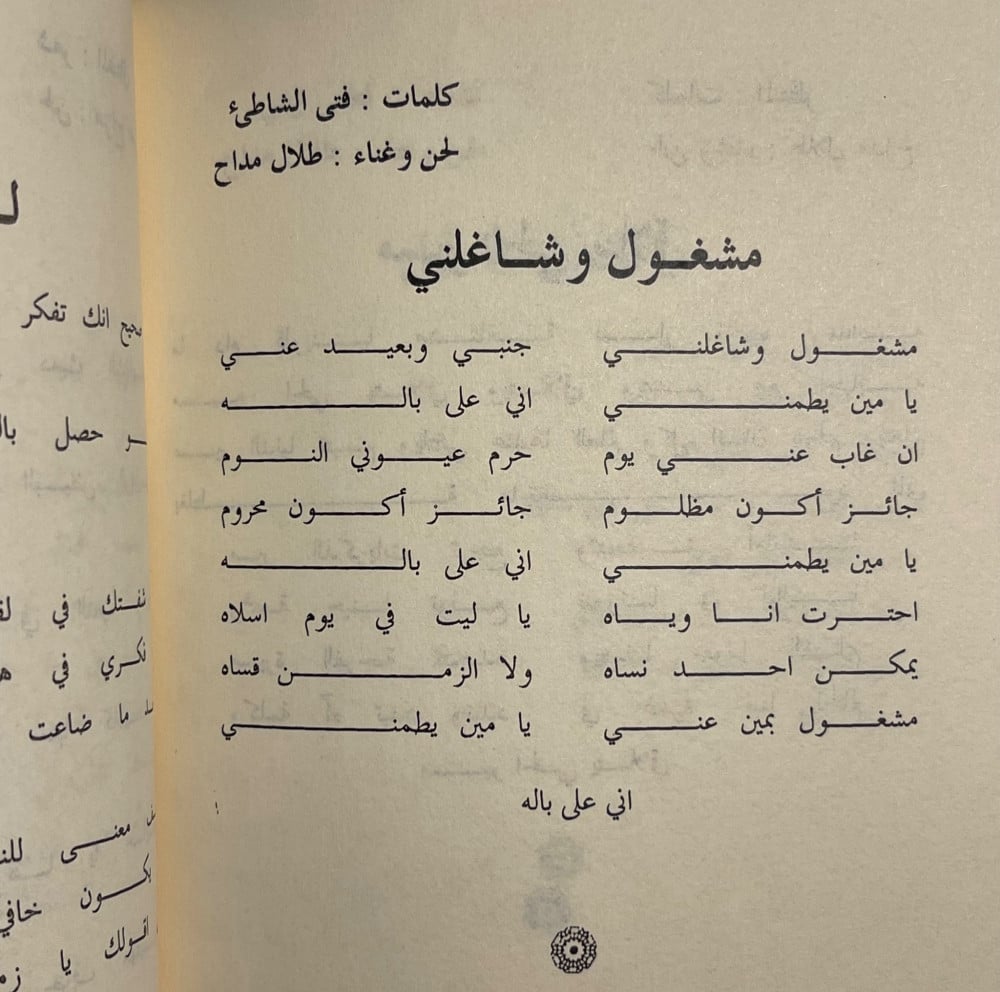 كلمات : فتى الشاطىء
لحن وغناء : طلال مداح
مشغول وشاغلني
مشغول وشاغلني جنبي وبعيد عني
يا مين يطمني اني على باله
ان غاب عني يوم حرم عيوني النوم
جائز أكون مظلوم جائز أكون محروم
يا مين يطمني اني على باله
احترت انا وياه يا ليت في يوم اسلاه
يمكن احد نساه ولا الزمن قساه
مشغول بمين عني يا مين يطمني
اني على باله
انك تفكر
حصل
في
في
ما ضاعت
معنى
يكون
اقولك يا